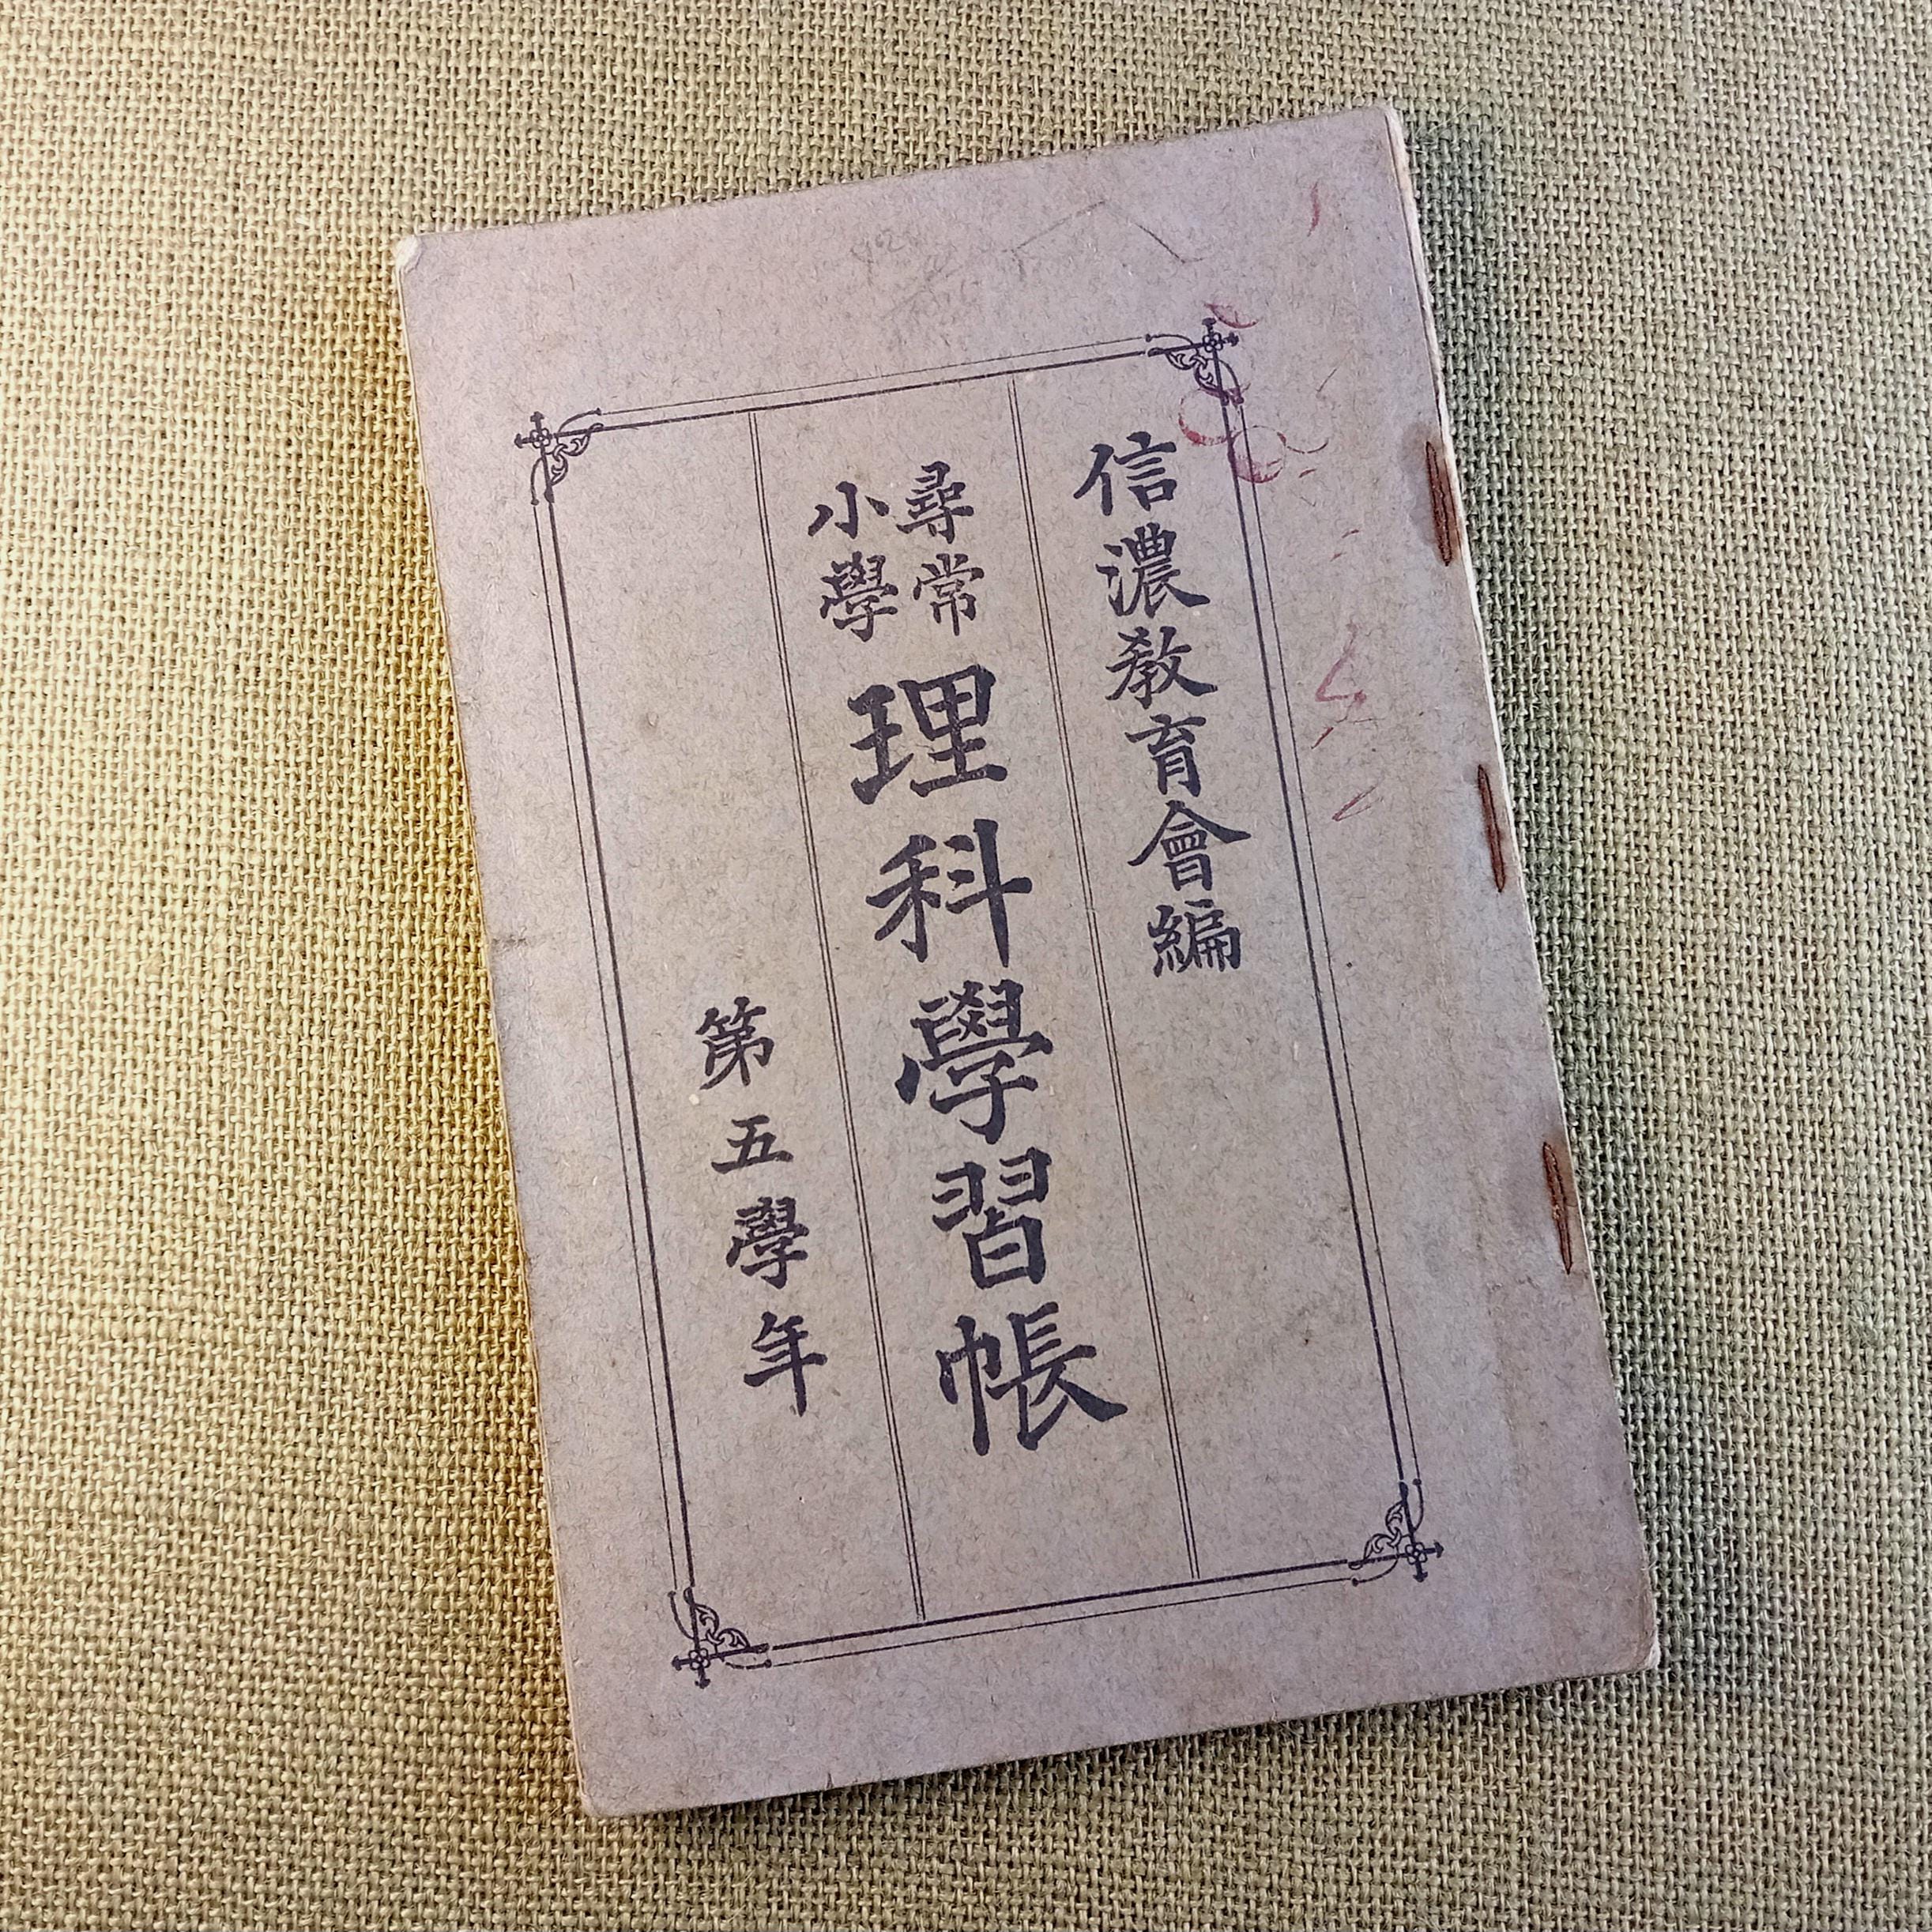 信濃教育會編
尋常
小學
理科學習帳
第五學年